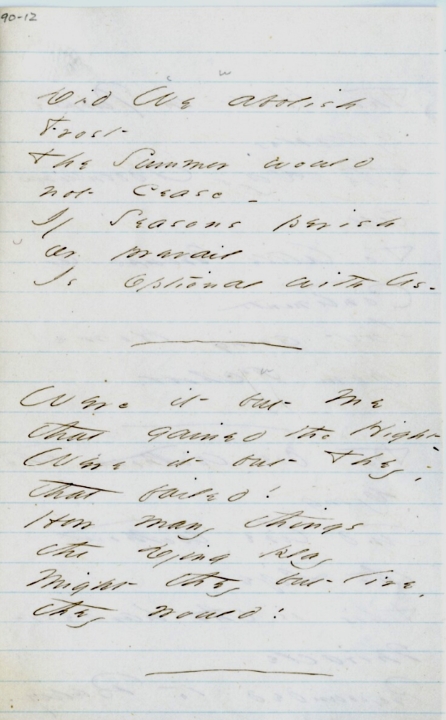 90-12
Did We abolish
Frost
The Summer would
not cease -
If Seasons perish
or prevail
Is optional with Us -
Were it but Me
that gained the Hight -
Were it but They,
that failed!
How many things
the dying play
Might they but live,
they would!